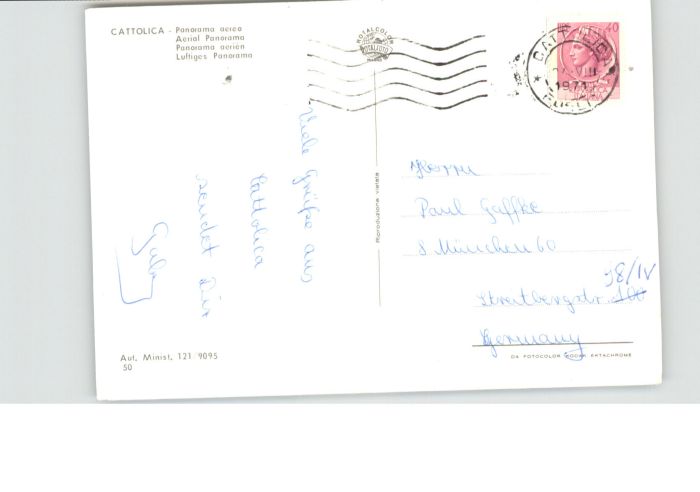 CATTOLICA - Panorama aerea
Aerial Panorama
Panorama aerién
Luftiges Panorama
ROTALCOLOR
ROTALFOTO
40
CATTOLICA
VIII
1971
Viele Grüße aus
Cattolica
sendet Dir
Gabi
Riproduzione vietata
Herrn
Paul Gaffke
8 München 60
18/IV
Streitbergstr. 100
Germany
Aut. Minist. 121 9095
50
DA FOTOCOLOR KODAK EKTACHROME